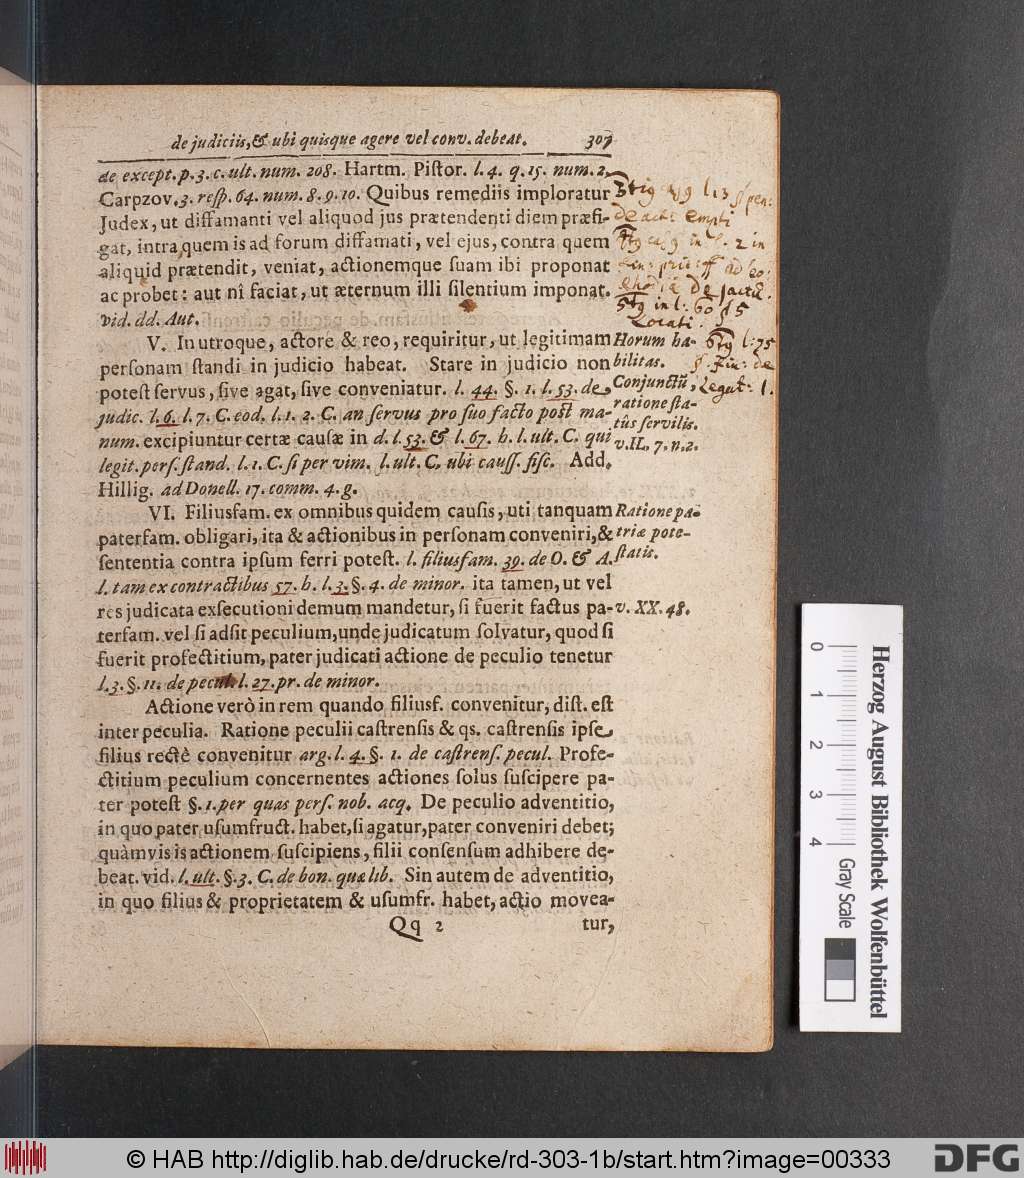 de judiciis, & ubi quisque agere vel conv. debeat. 307
de except. p. 3. c. ult. num. 208. Hartm. Pistor. l. 4. q. 15. num. 2.
Carpzov. 3. resp. 64. num. 8. 9. 10. Quibus remediis imploratur
Judex, ut diffamanti vel aliquod jus prætendenti diem præfi-
gat, intra quem is ad forum diffamati, vel ejus, contra quem
aliquid prætendit, veniat, actionemque suam ibi proponat
ac probet: aut nî faciat, ut æternum illi silentium imponat.
vid. dd. Aut.
V. In utroque, actore & reo, requiritur, ut legitimam
personam standi in judicio habeat. Stare in judicio non
potest servus, sive agat, sive conveniatur. l. 44. §. 1. l. 53. de
judic. l. 6. l. 7. C. eod. l. 1. 2. C. an servus pro suo facto post ma-
num. excipiuntur certæ causæ in d. l. 53. & l. 67. h. l. ult. C. qui
legit. pers. stand. l. 1. C. si per vim. l. ult. C. ubi causs. fisc. Add.
Hillig. ad Donell. 17. comm. 4. g.
VI. Filiusfam. ex omnibus quidem causis, uti tanquam
paterfam. obligari, ita & actionibus in personam conveniri, &
sententia contra ipsum ferri potest. l. filiusfam. 39. de O. & A.
l. tam ex contractibus 57. h. l. 3. §. 4. de minor. ita tamen, ut vel
res judicata exsecutioni demum mandetur, si fuerit factus pa-
terfam. vel si adsit peculium, unde judicatum solvatur, quod si
fuerit profectitium, pater judicati actione de peculio tenetur
l. 3. §. 11. de pecul. l. 27. pr. de minor.
Actione verò in rem quando filiusf. convenitur, dist. est
inter peculia. Ratione peculii castrensis & qs. castrensis ipse
filius rectè convenitur arg. l. 4. §. 1. de castrens. pecul. Profe-
ctitium peculium concernentes actiones solus suscipere pa-
ter potest §. 1. per quas pers. nob. acq. De peculio adventitio,
in quo pater usumfruct. habet, si agatur, pater conveniri debet;
quàmvis is actionem suscipiens, filii consensum adhibere de-
beat. vid. l. ult. §. 3. C. de bon. quæ lib. Sin autem de adventitio,
in quo filius & proprietatem & usumfr. habet, actio movea-
Qq 2 tur,
l. 13
de act: Empti
2 in
ad
de
in l: 60 § 5
Locati.
l: 75
§. fin: de
Legat: 1.
Horum ha-
bilitas.
Conjunctũ,
ratione sta-
tûs servilis.
v. II. 7. n. 2.
Ratione pa-
triæ pote-
statis.
v. XX. 48.
0 1 2 3 4
Gray Scale
Herzog August Bibliothek Wolfenbüttel
© HAB http://diglib.hab.de/drucke/rd-303-1b/start.htm?image=00333
DFG